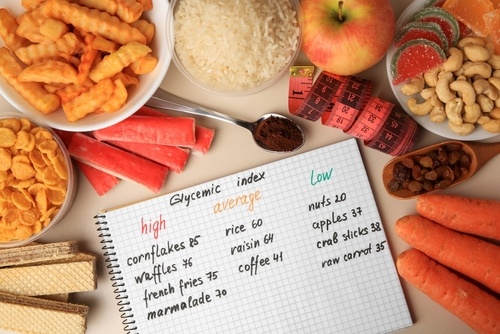 Glycemic index
high
cornflakes 85
waffles 76
french fries 75
marmalade 70
average
rice 60
raisin 64
coffee 41
low
nuts 20
apples 37
crab sticks 38
raw carrot 35